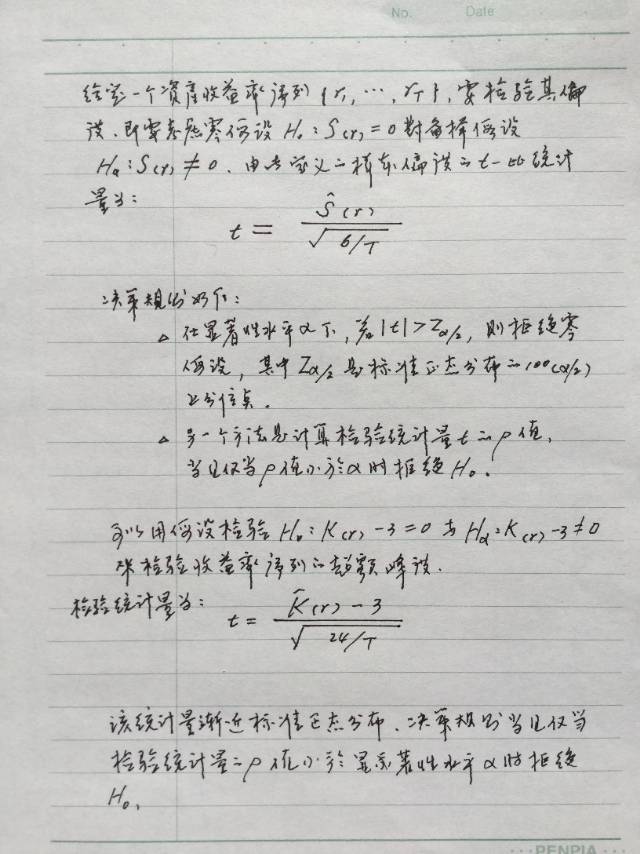 No. Date
给定一个资产收益率序列{r₁, ⋯, r_T}, 要检验其偏
误, 即要考虑零假设 H₀: S(r) = 0 對备择假设
Hₐ: S(r) ≠ 0. 由定义的样本偏误的t-比统计
量为:
t = Ŝ(r) / √(6/T)
决策规则如下:
△ 在显著性水平α下, 若|t| > Z_{α/2}, 则拒绝零
假设, 其中 Z_{α/2} 是标准正态分布的100(α/2)
上分位点.
△ 另一个方法是计算检验统计量t的p值,
当且仅当p值小於α时拒绝H₀.
可以用假设检验 H₀: K(r) - 3 = 0 与 Hₐ: K(r) - 3 ≠ 0
来检验收益率序列的超额峰误.
检验统计量为:
t = K̂(r) - 3 / √(24/T)
该统计量渐近标准正态分布. 决策规则当且仅当
检验统计量的p值小於显著性水平α时拒绝
H₀.
PENPIA